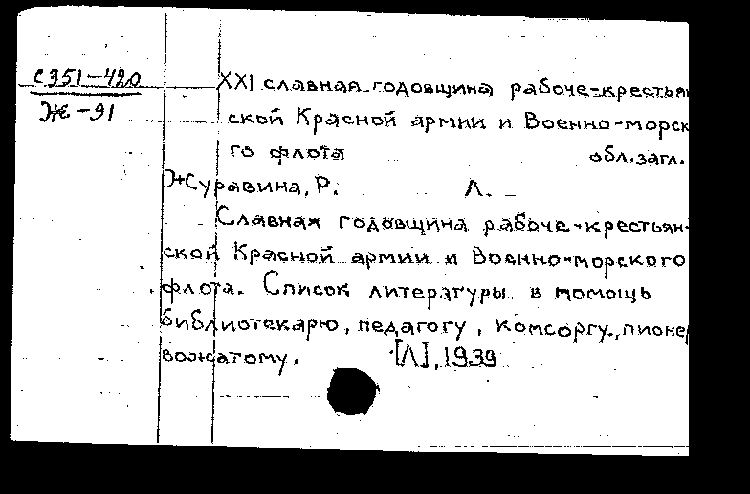 С351-420
Ж-91
XXI славная годовщина рабоче-крестьян
ской Красной армии и Военно-морск
го флота обл.загл.
Журавина, Р. Л. –
Славная годовщина рабоче-крестьян-
ской Красной армии и Военно-морского
флота. Список литературы в помощь
библиотекарю, педагогу, комсоргу, пионер
вожатому. [Л], 1939